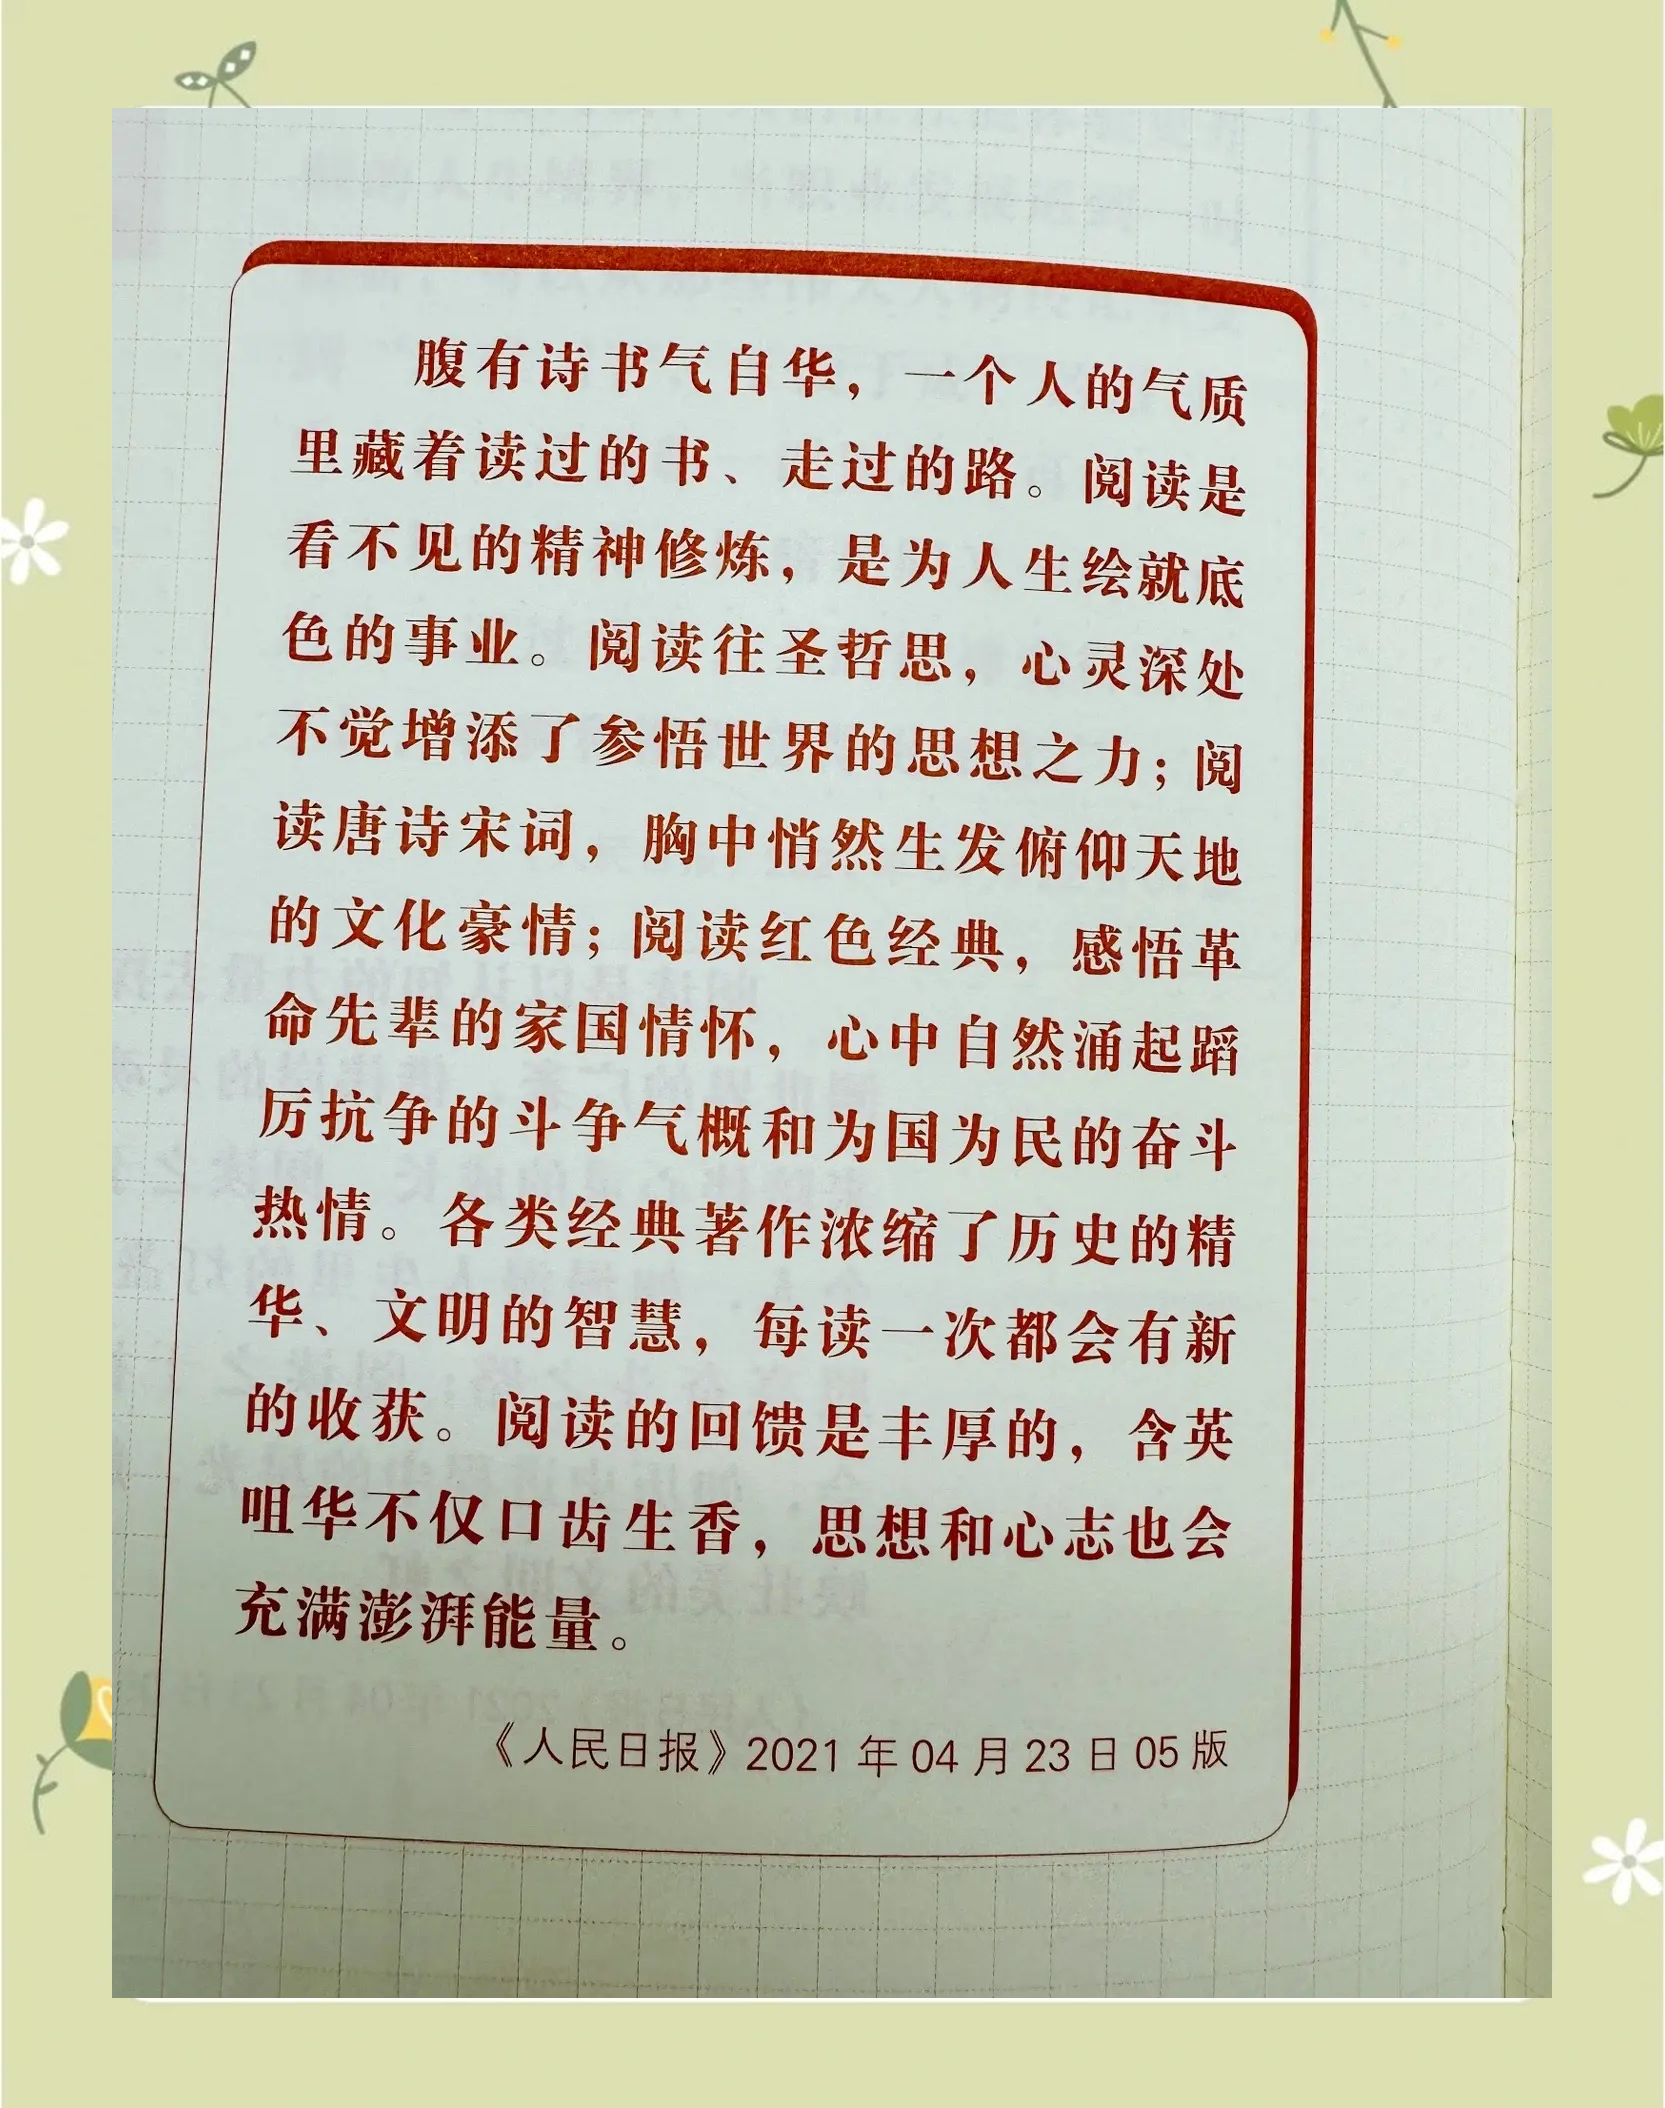 腹有诗书气自华，一个人的气质
里藏着读过的书、走过的路。阅读是
看不见的精神修炼，是为人生绘就底
色的事业。阅读往圣哲思，心灵深处
不觉增添了参悟世界的思想之力；阅
读唐诗宋词，胸中悄然生发俯仰天地
的文化豪情；阅读红色经典，感悟革
命先辈的家国情怀，心中自然涌起蹈
厉抗争的斗争气概和为国为民的奋斗
热情。各类经典著作浓缩了历史的精
华、文明的智慧，每读一次都会有新
的收获。阅读的回馈是丰厚的，含英
咀华不仅口齿生香，思想和心志也会
充满澎湃能量。
《人民日报》2021 年 04 月 23 日 05 版